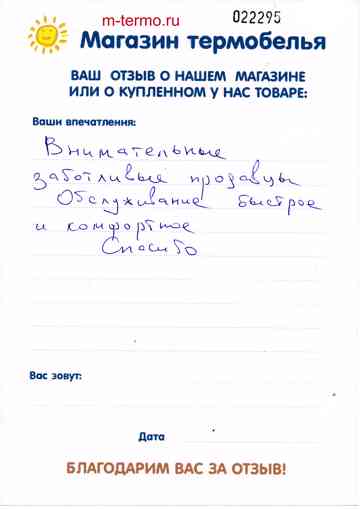 m-termo.ru
022295
Магазин термобелья
ВАШ ОТЗЫВ О НАШЕМ МАГАЗИНЕ
ИЛИ О КУПЛЕННОМ У НАС ТОВАРЕ:
Ваши впечатления:
Внимательные
заботливые продавцы
Обслуживание быстрое
и комфортное
Спасибо
Вас зовут:
Дата
БЛАГОДАРИМ ВАС ЗА ОТЗЫВ!